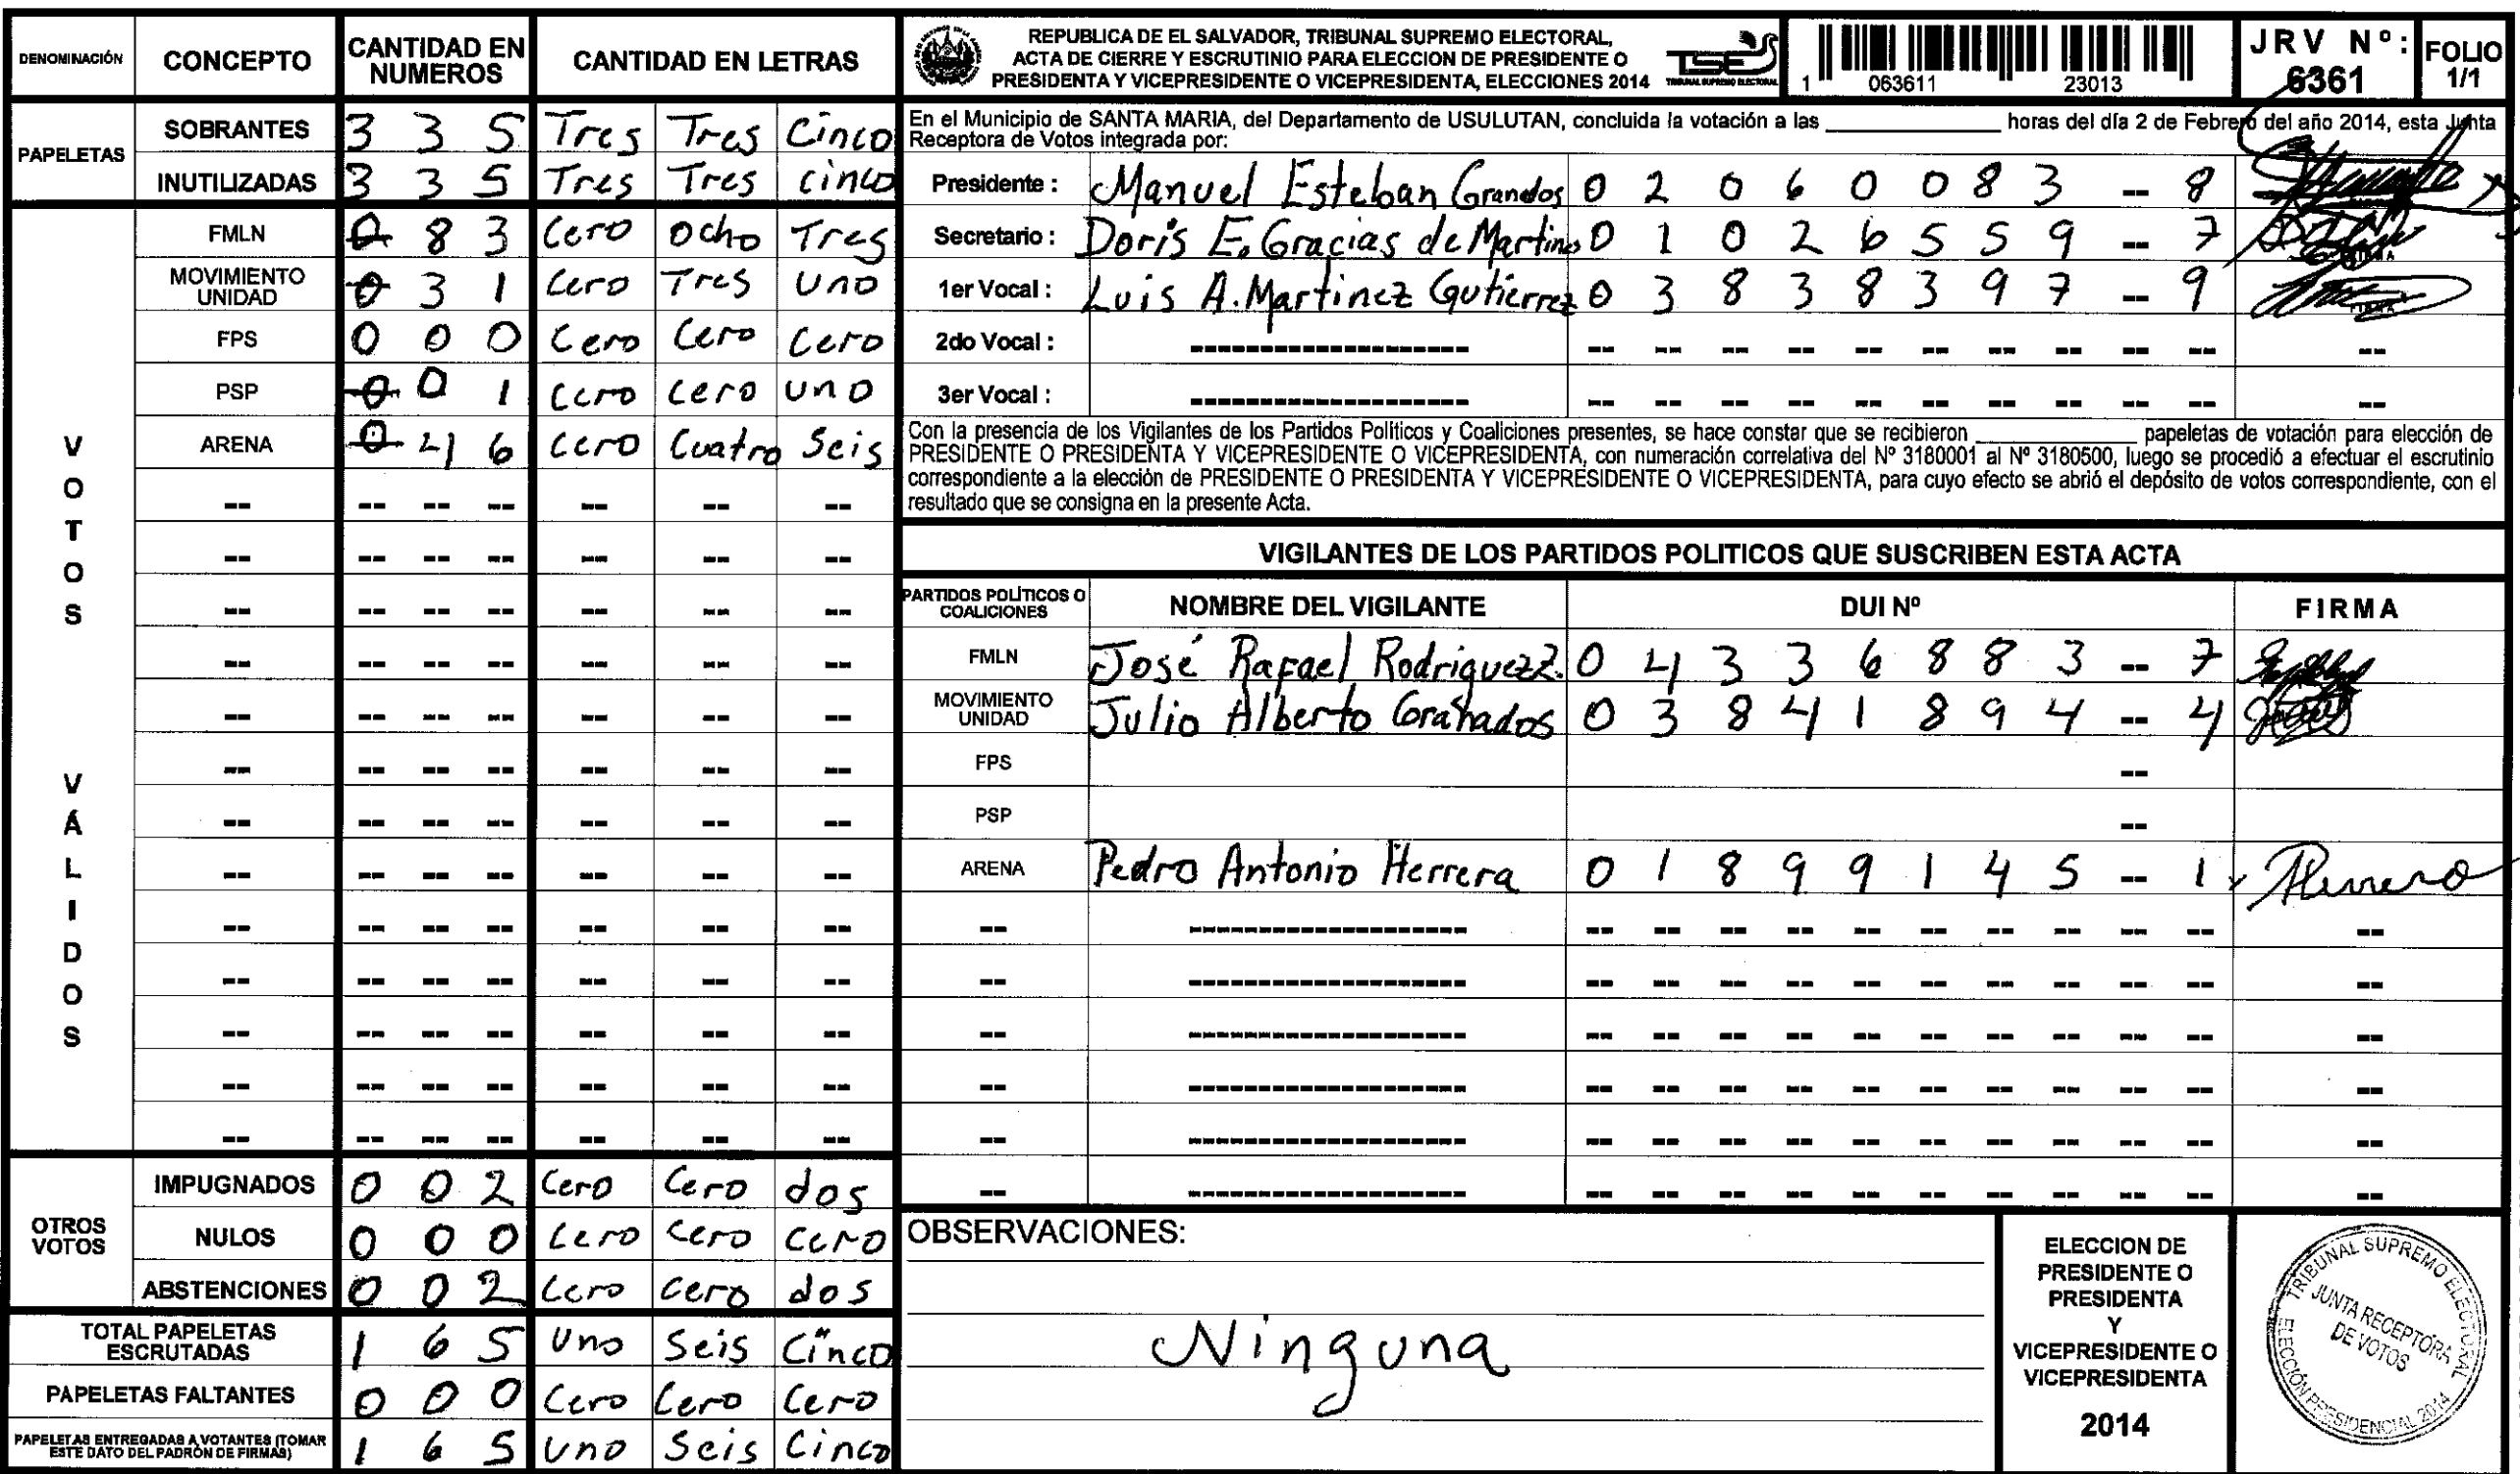 DENOMINACIÓN CONCEPTO CANTIDAD EN NUMEROS CANTIDAD EN LETRAS
PAPELETAS
SOBRANTES 3 3 5 Tres Tres Cinco
INUTILIZADAS 3 3 5 Tres Tres cinco
VOTOS VÁLIDOS
FMLN 0 8 3 Cero Ocho Tres
MOVIMIENTO UNIDAD 0 3 1 Cero Tres Uno
FPS 0 0 0 Cero Cero Cero
PSP 0 0 1 Cero Cero uno
ARENA 0 4 6 Cero Cuatro Seis
-- -- -- -- -- -- --
-- -- -- -- -- -- --
-- -- -- -- -- -- --
-- -- -- -- -- -- --
-- -- -- -- -- -- --
-- -- -- -- -- -- --
-- -- -- -- -- -- --
-- -- -- -- -- -- --
-- -- -- -- -- -- --
-- -- -- -- -- -- --
-- -- -- -- -- -- --
-- -- -- -- -- -- --
-- -- -- -- -- -- --
OTROS VOTOS
IMPUGNADOS 0 0 2 Cero Cero dos
NULOS 0 0 0 Cero Cero Cero
ABSTENCIONES 0 0 2 Cero Cero dos
TOTAL PAPELETAS ESCRUTADAS 1 6 5 Uno Seis Cinco
PAPELETAS FALTANTES 0 0 0 Cero Cero Cero
PAPELETAS ENTREGADAS A VOTANTES (TOMAR ESTE DATO DEL PADRÓN DE FIRMAS) 1 6 5 Uno Seis Cinco
REPUBLICA DE EL SALVADOR, TRIBUNAL SUPREMO ELECTORAL,
ACTA DE CIERRE Y ESCRUTINIO PARA ELECCION DE PRESIDENTE O
PRESIDENTA Y VICEPRESIDENTE O VICEPRESIDENTA, ELECCIONES 2014
TSE
TRIBUNAL SUPREMO ELECTORAL
1 063611 23013
JRV Nº: 6361
FOLIO 1/1
En el Municipio de SANTA MARIA, del Departamento de USULUTAN, concluida la votación a las ____________ horas del día 2 de Febrero del año 2014, esta Junta
Receptora de Votos integrada por:
Presidente : Manuel Esteban Grandos 0 2 0 6 0 0 8 3 -- 8
Secretario : Doris E. Gracias de Martine 0 1 0 2 6 5 5 9 -- 7
1er Vocal : Luis A. Martinez Gutierrez 0 3 8 3 8 3 9 7 -- 9
2do Vocal : -------------------- -- -- -- -- -- -- -- -- -- -- --
3er Vocal : -------------------- -- -- -- -- -- -- -- -- -- -- --
Con la presencia de los Vigilantes de los Partidos Politicos y Coaliciones presentes, se hace constar que se recibieron ____________ papeletas de votación para elección de
PRESIDENTE O PRESIDENTA Y VICEPRESIDENTE O VICEPRESIDENTA, con numeración correlativa del Nº 3180001 al Nº 3180500, luego se procedió a efectuar el escrutinio
correspondiente a la elección de PRESIDENTE O PRESIDENTA Y VICEPRESIDENTE O VICEPRESIDENTA, para cuyo efecto se abrió el depósito de votos correspondiente, con el
resultado que se consigna en la presente Acta.
VIGILANTES DE LOS PARTIDOS POLITICOS QUE SUSCRIBEN ESTA ACTA
PARTIDOS POLÍTICOS O COALICIONES NOMBRE DEL VIGILANTE DUI Nº FIRMA
FMLN José Rafael Rodriguez Z. 0 4 3 3 6 8 8 3 -- 7
MOVIMIENTO UNIDAD Julio Alberto Granados 0 3 8 4 1 8 9 4 -- 4
FPS --
PSP --
ARENA Pedro Antonio Herrera 0 1 8 9 9 1 4 5 -- 1
-- -------------------- -- -- -- -- -- -- -- -- -- -- --
-- -------------------- -- -- -- -- -- -- -- -- -- -- --
-- -------------------- -- -- -- -- -- -- -- -- -- -- --
-- -------------------- -- -- -- -- -- -- -- -- -- -- --
-- -------------------- -- -- -- -- -- -- -- -- -- -- --
-- -------------------- -- -- -- -- -- -- -- -- -- -- --
OBSERVACIONES:
Ninguna
ELECCION DE
PRESIDENTE O
PRESIDENTA
Y
VICEPRESIDENTE O
VICEPRESIDENTA
2014
TRIBUNAL SUPREMO ELECTORAL
JUNTA RECEPTORA
DE VOTOS
ELECCIÓN PRESIDENCIAL 2014